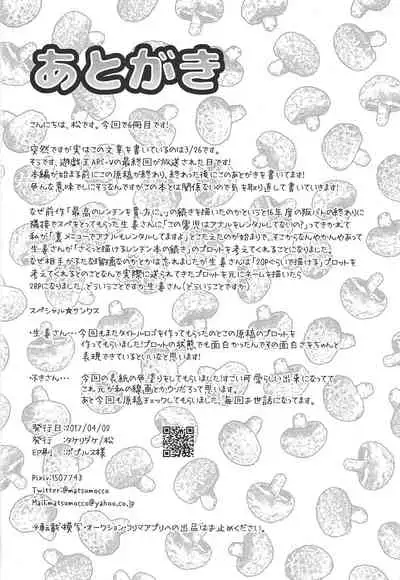 あとがき
こんにちは、松です。今回で6冊目です!
突然ですが実はこの文章を書いているのは3/26です。
そうです、遊戯王ARC-Vの最終回が放送された日です!
本編が始まる前にこの原稿が終わり、終わった後にこのあとがきを書いてます!
色んな意味でしにそうなんですがこの本とは関係ないので気を取り直して書いていきます!
なぜ前作「最高のレンチンを貴方に。」の続きを描いたのかというと16年度の阪パトの終わりに
隣接でスペをとってもらった生姜さんに「この零児はアナルをレンタルしてないの?」ってきかれて
私が「裏メニューでアナルもレンタルしてますよ」とこたえたのが始まりで、そこからなんやかんやあって
生姜さんが「さくっと描けるレンチン本の続き」のプロットを考えてくれることになりました。
なぜ相手が
忘れましたが生姜さんは「20Pぐらいで描ける」プロット
を考えてくれるとのことなんで実際に送られてきたプロットを元にネームを描いたら
28Pになりました。どういうことですか生姜さん(どういうことですか)
スペシャル☆サンクス
・生姜さん…今回もまたタイトルロゴを作ってもらったのとこの原稿のプロットを
作ってもらいました!プロットの状態でも面白かったんでその面白さをちゃんと
表現できているといいなと思います!
今回の表紙の色塗りをしてもらいました!すごい可愛らしい出来になってて
これ元が私の線画とかウソだろって思います。
あと今回も原稿チェックしてもらいました。毎回お世話になってます。
発行日:2017/04/09
発行:タケリダケ/松
印刷:ポプルス様
Pixiv:1507743
Twitter:@matsumocco
Mail:matsumocco@yahoo.co.jp
※転載・模写・オークション・フリマアプリへの出品はお止めください。